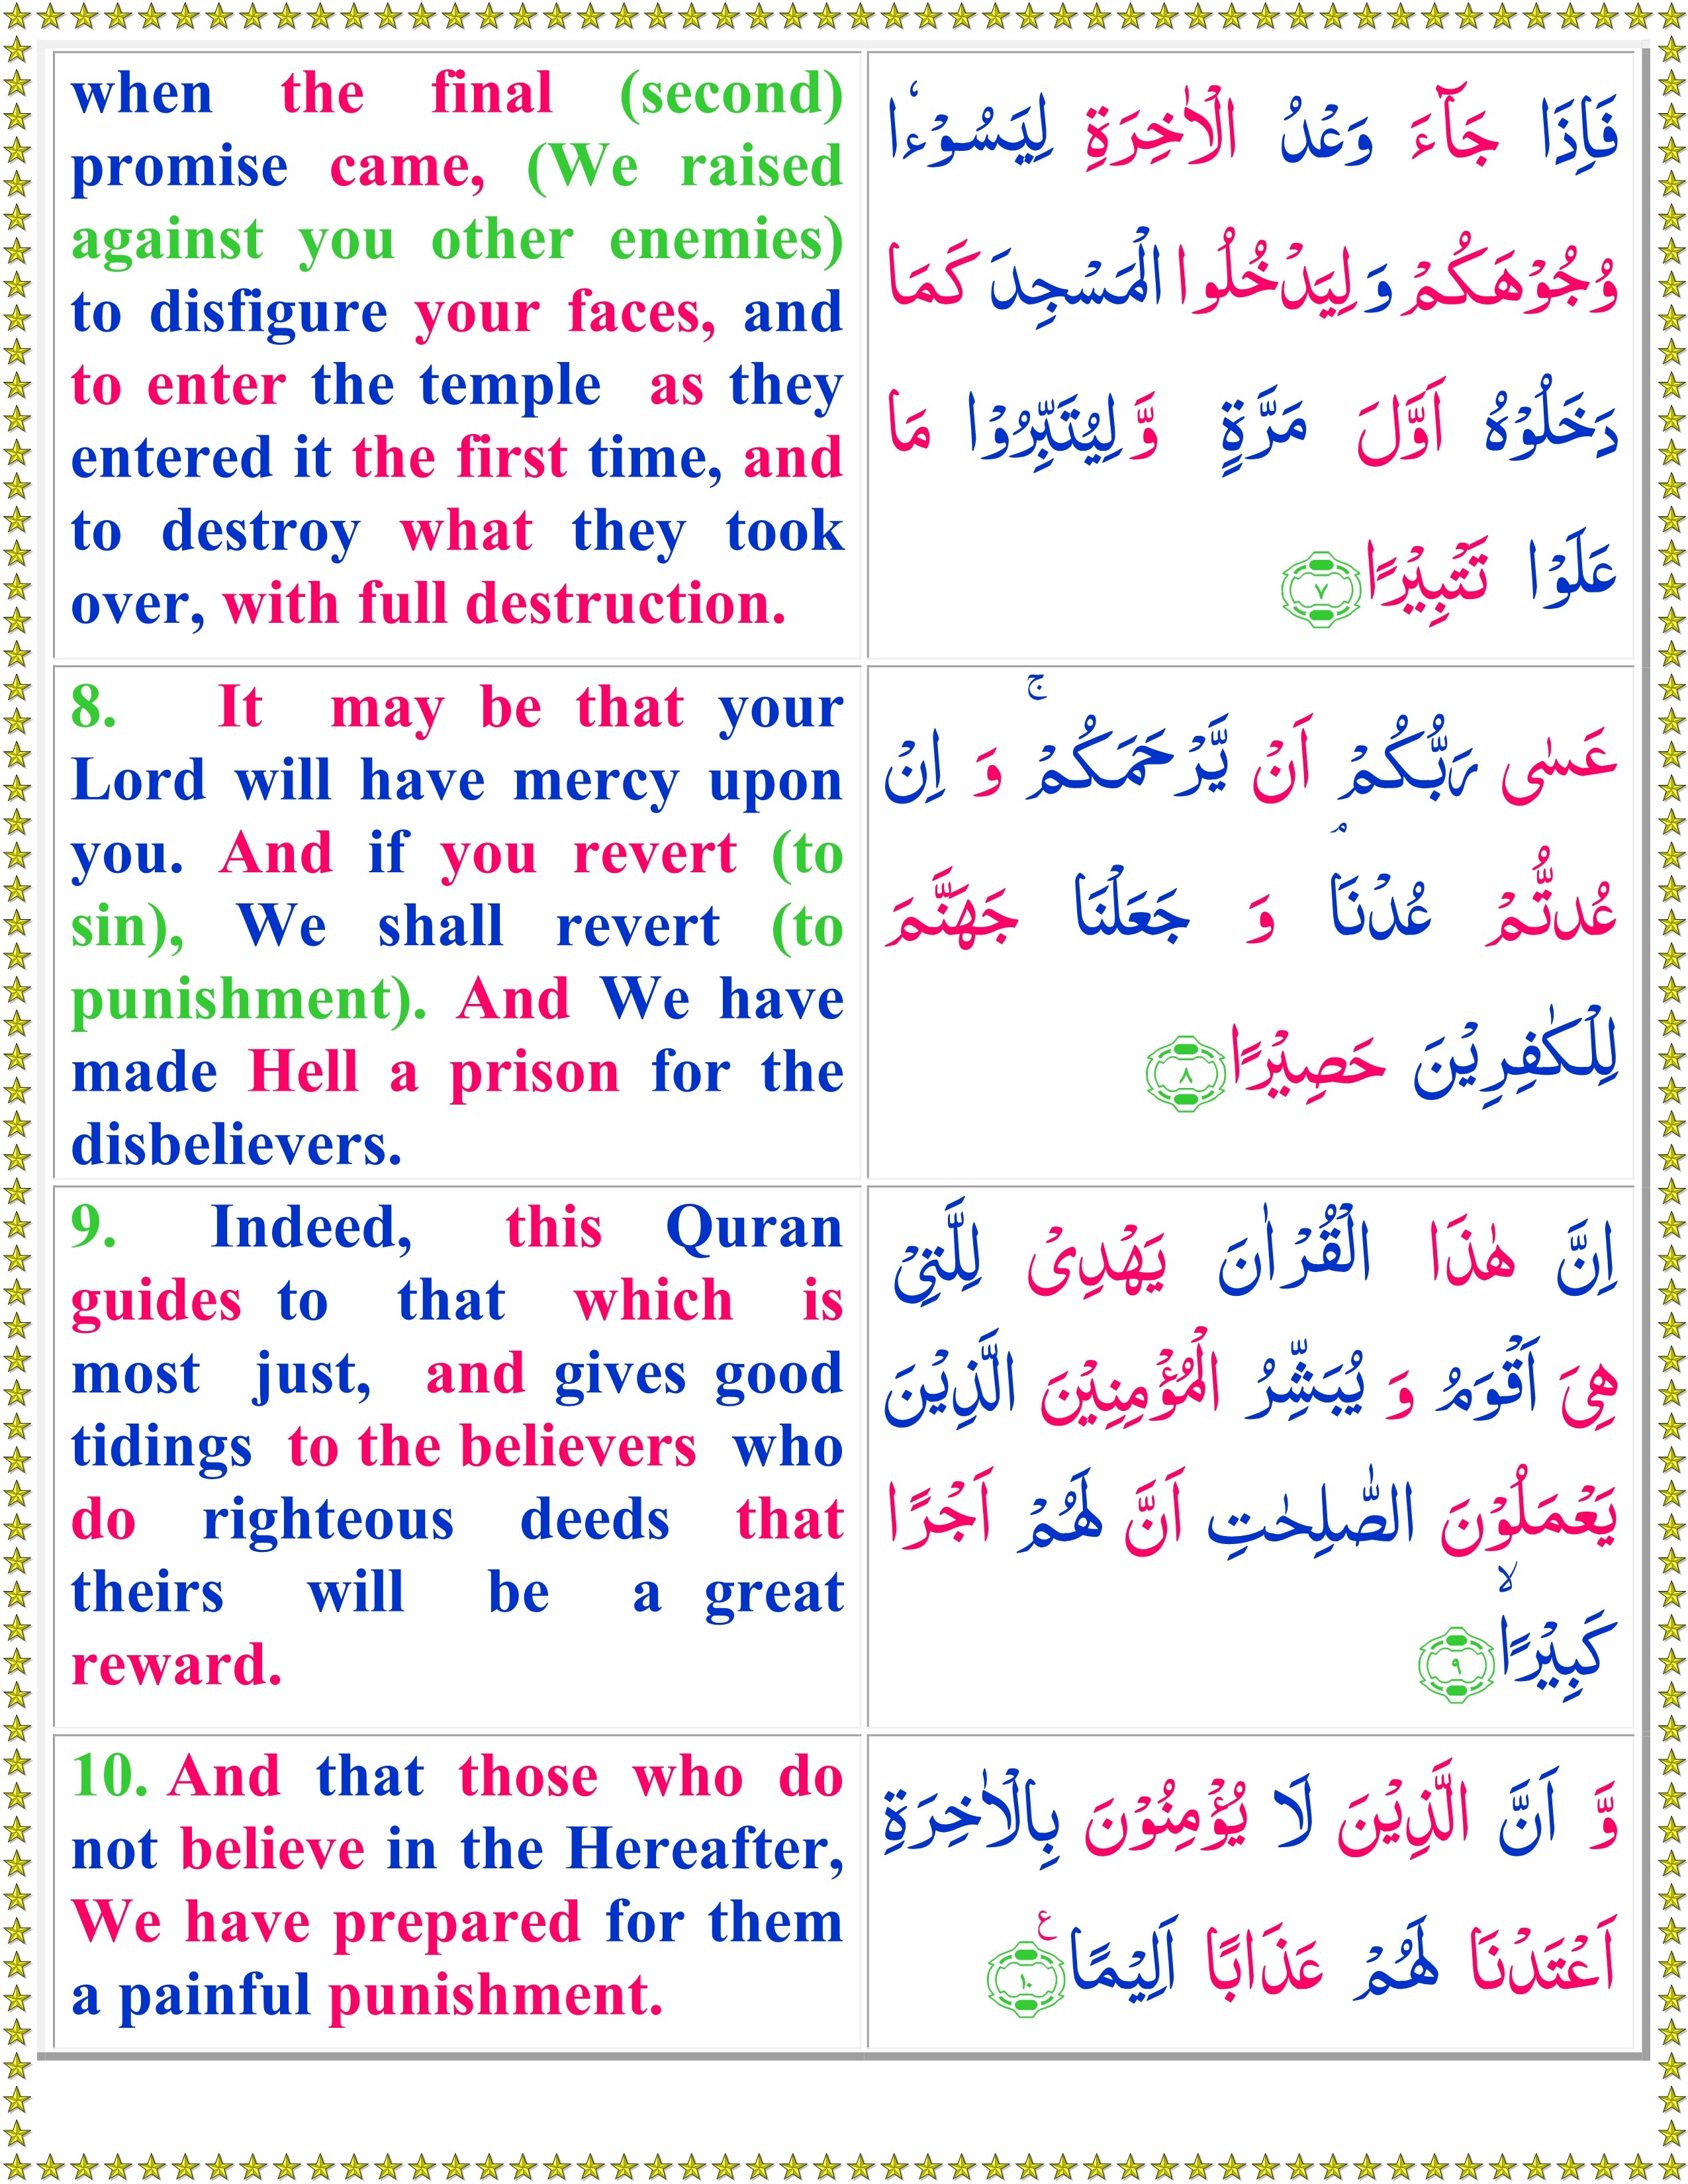 when the final (second)
promise came, (We raised
against you other enemies)
to disfigure your faces, and
to enter the temple as they
entered it the first time, and
to destroy what they took
over, with full destruction.
فَاِذَا جَآءَ وَعْدُ الْاٰخِرَةِ لِيَسُوْٓءٗا
وُجُوْهَكُمْ وَ لِيَدْخُلُوا الْمَسْجِدَ كَمَا
دَخَلُوْهُ اَوَّلَ مَرَّةٍ وَّ لِيُتَبِّرُوْا مَا
عَلَوْا تَتْبِيْرًا ۷
8. It may be that your
Lord will have mercy upon
you. And if you revert (to
sin), We shall revert (to
punishment). And We have
made Hell a prison for the
disbelievers.
عَسٰى رَبُّكُمْ اَنْ يَّرْحَمَكُمْ ۚ وَ اِنْ
عُدتُّمْ عُدْنَا ۘ وَ جَعَلْنَا جَهَنَّمَ
لِلْكٰفِرِيْنَ حَصِيْرًا ۸
9. Indeed, this Quran
guides to that which is
most just, and gives good
tidings to the believers who
do righteous deeds that
theirs will be a great
reward.
اِنَّ هٰذَا الْقُرْاٰنَ يَهْدِىْ لِلَّتِىْ
هِىَ اَقْوَمُ وَ يُبَشِّرُ الْمُؤْمِنِيْنَ الَّذِيْنَ
يَعْمَلُوْنَ الصّٰلِحٰتِ اَنَّ لَهُمْ اَجْرًا
كَبِيْرًا ۙ ۹
10. And that those who do
not believe in the Hereafter,
We have prepared for them
a painful punishment.
وَّ اَنَّ الَّذِيْنَ لَا يُؤْمِنُوْنَ بِالْاٰخِرَةِ
اَعْتَدْنَا لَهُمْ عَذَابًا اَلِيْمًا ع ۱۰